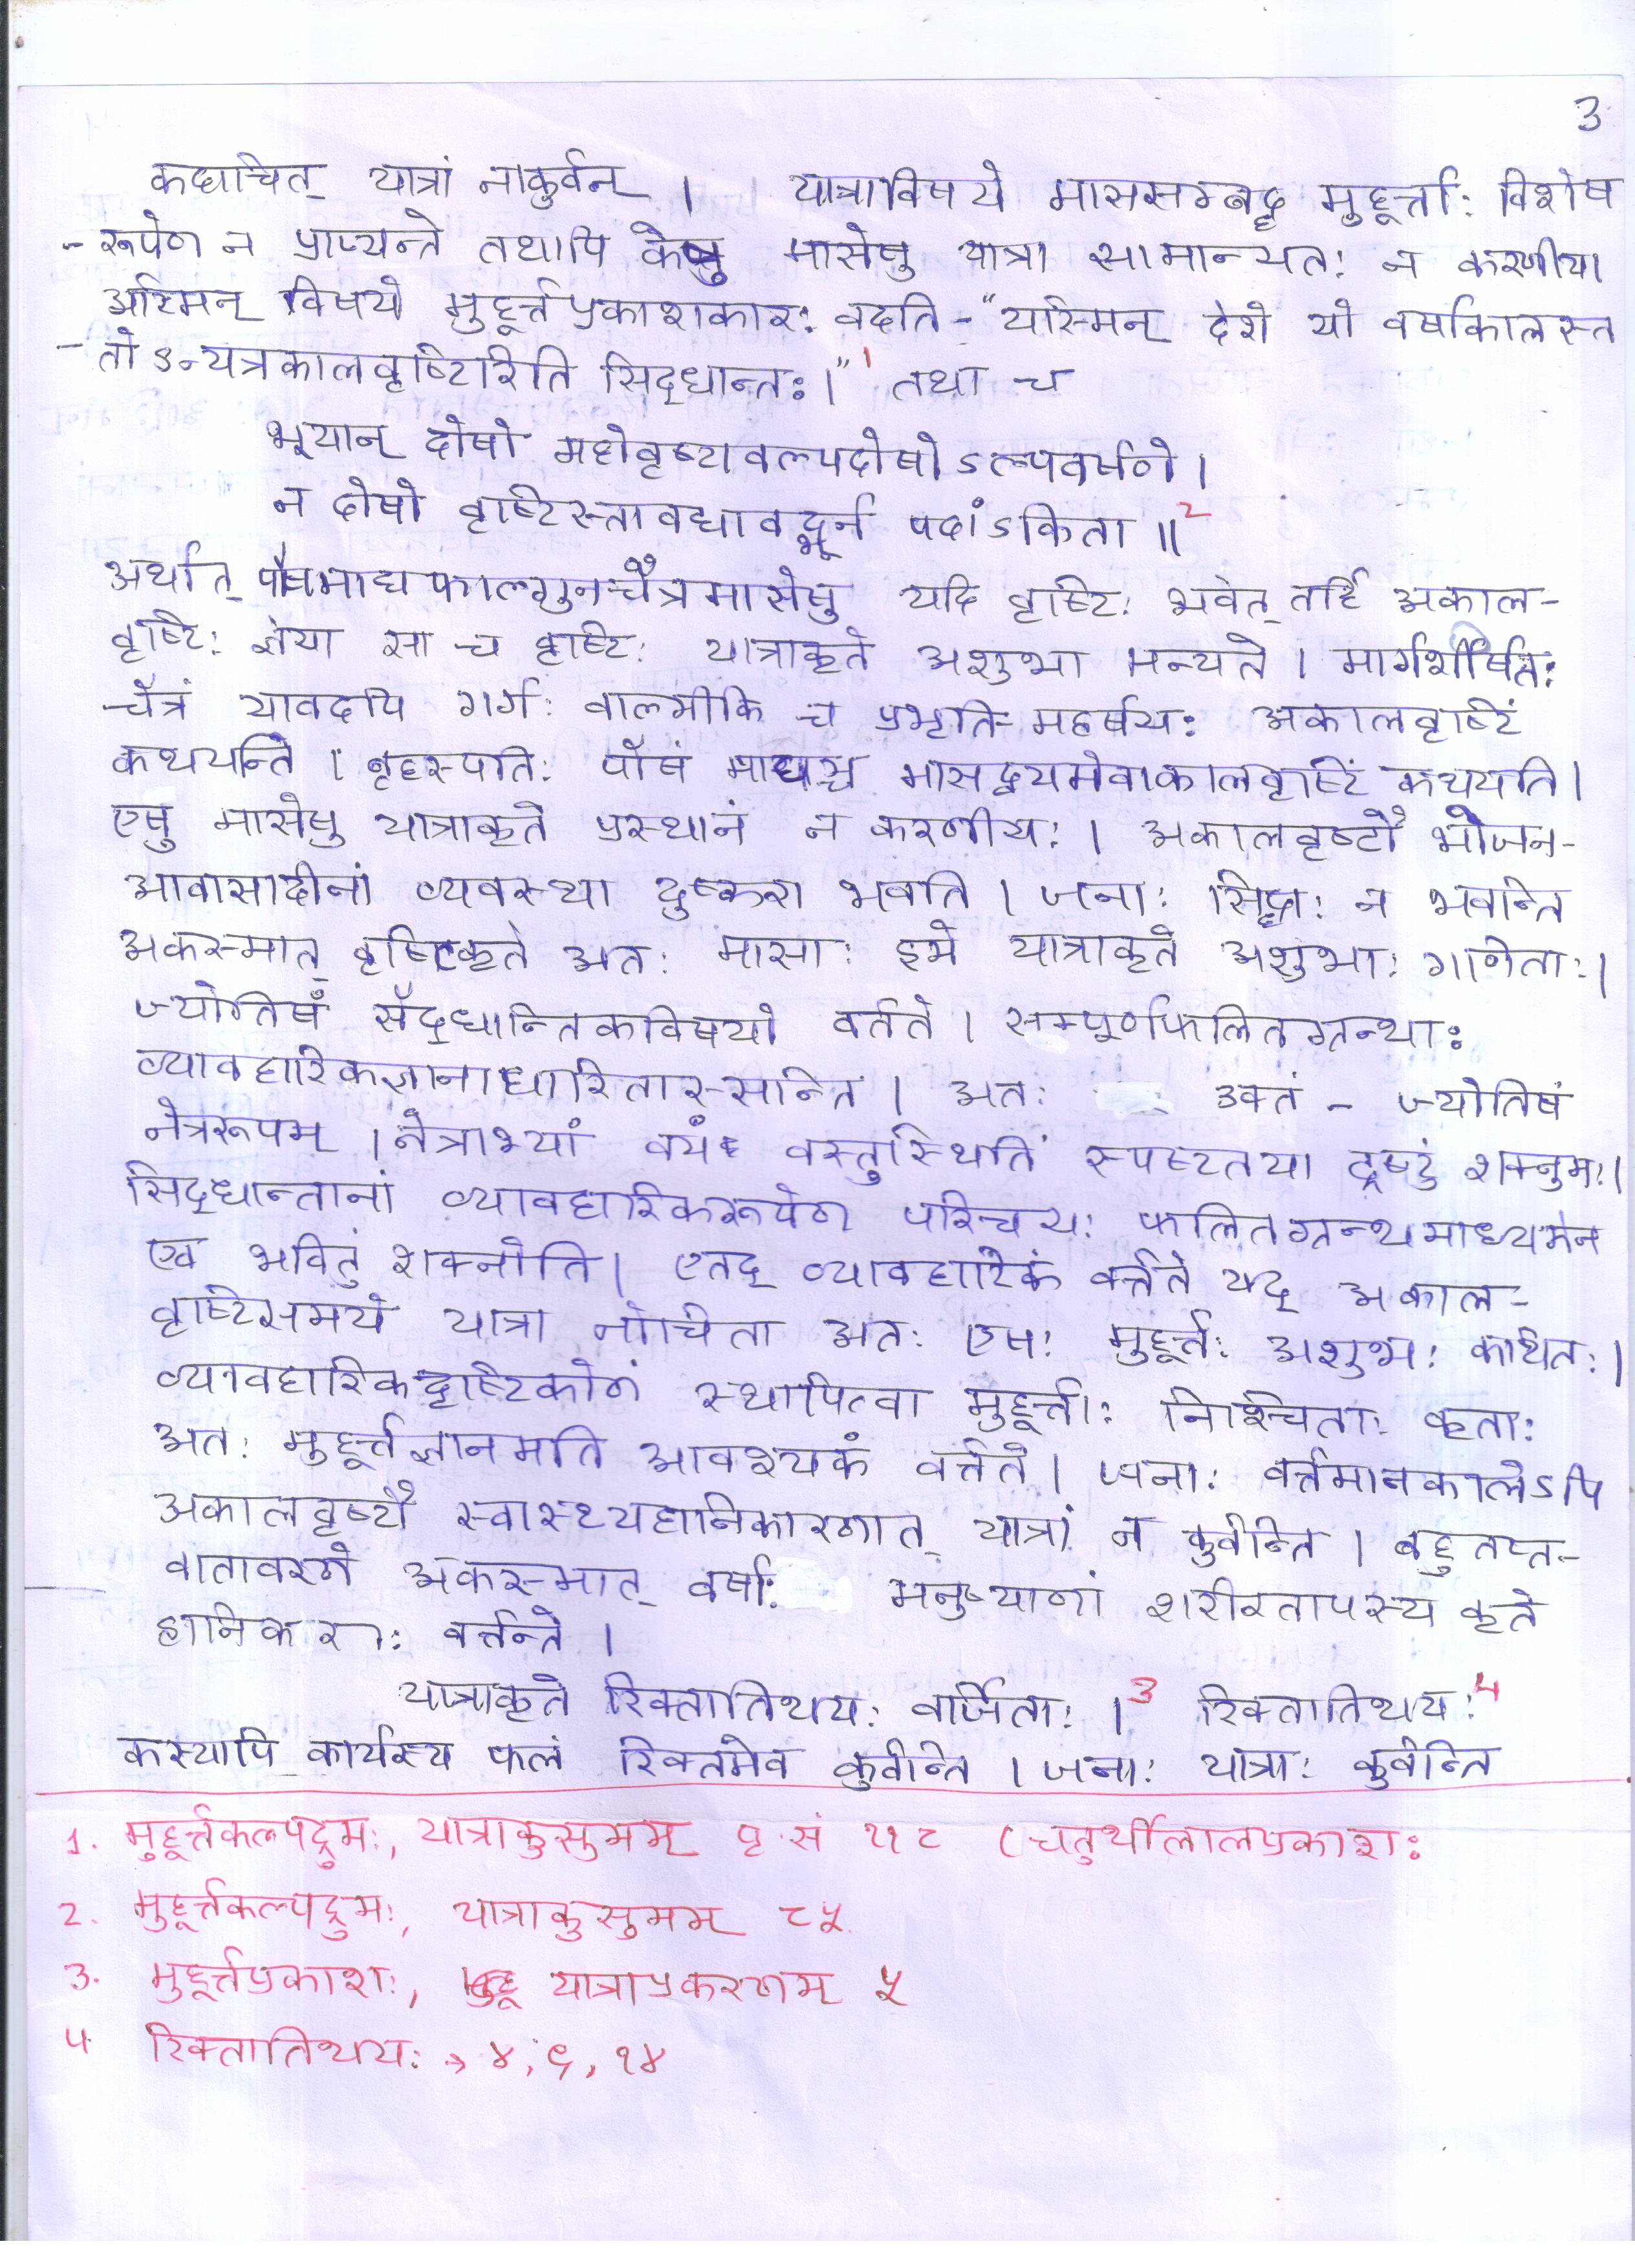 3
कदाचित् यात्रां नाकुर्वन् । यात्राविषये माससम्बद्ध मुहूर्त्ताः विशेष
-रूपेण न प्राप्यन्ते तथापि केषु मासेषु यात्रा सामान्यतः न करणीया
अस्मिन् विषये मुहूर्त्तप्रकाशकारः वदति - "यस्मिन् देशे यो वर्षाकालस्त
-तोऽन्यत्रकालवृष्टिरिति सिद्धान्तः।"1 तथा च
भूयान् दोषो महोवृष्टावल्पदोषोऽल्पवर्षणे ।
न दोषो वृष्टिस्तावद्यावद्भूर्न पदांऽकिता ॥2
अर्थात् पौषमाघफाल्गुनचैत्रमासेषु यदि वृष्टिः भवेत् तर्हि अकाल-
वृष्टिः ज्ञेया सा च वृष्टिः यात्राकृते अशुभा मन्यते । मार्गशीर्षतः
चैत्रं यावदपि गर्गः वाल्मीकि च प्रभृति-महर्षयः अकालवृष्टिं
कथयन्ति । बृहस्पतिः पौषं माघञ्च मासद्वयमेवाकालवृष्टिं कथयति ।
एषु मासेषु यात्राकृते प्रस्थानं न करणीयः । अकालवृष्टौ भोजन-
आवासादीनां व्यवस्था दुष्करा भवति । जनाः सिद्धाः न भवन्ति
अकस्मात् वृष्टिकृते अतः मासाः इमे यात्राकृते अशुभाः गणिताः ।
ज्योतिषं सैद्धान्तिकविषयो वर्तते । सम्पूर्णफलितग्रन्थाः
व्यावहारिकज्ञानाधारितास्सन्ति । अतः उक्तं - ज्योतिषं
नेत्ररूपम् । नेत्राभ्यां वयं वस्तुस्थितिं स्पष्टतया द्रष्टुं शक्नुमः ।
सिद्धान्तानां व्यावहारिकरूपेण परिचयः फलितग्रन्थमाध्यमेन
एव भवितुं शक्नोति । एतद् व्यावहारिकं वर्त्तते यद् अकाल-
वृष्टिसमये यात्रा नोचिता अतः एषः मुहूर्त्तः अशुभः कथितः ।
व्यावहारिकदृष्टिकोणं स्थापित्वा मुहूर्त्ताः निश्चिताः कृताः
अतः मुहूर्त्तज्ञानमति आवश्यकं वर्त्तते । जनाः वर्त्तमानकालेऽपि
अकालवृष्टौ स्वास्थ्यहानिकारणात् यात्रां न कुर्वन्ति । बहु तप्त-
वातावरणे अकस्मात् वर्षाः मनुष्याणां शरीरतापस्य कृते
हानिकराः वर्त्तन्ते ।
यात्राकृते रिक्तातिथयः वर्जिताः ।3 रिक्तातिथयः4
कस्यापि कार्यस्य फलं रिक्तमेव कुर्वन्ति । जनाः यात्राः कुर्वन्ति
1. मुहूर्त्तकल्पद्रुमः, यात्राकुसुमम् पृ.सं २१८ (चतुर्थीलालप्रकाशः
2. मुहूर्त्तकल्पद्रुमः, यात्राकुसुमम् ८५
3. मुहूर्त्तप्रकाशः, यात्राप्रकरणम् ५
4 रिक्तातिथयः → ४, ९, १४